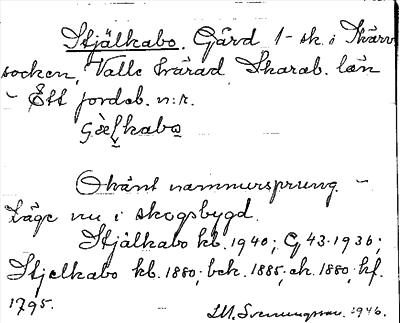 Stjälkabo. Gård 1 - sk. i Skärv
socken, Valle härad, Skarab. län
- Ett jordsb. n:r.
Okänt namnursprung. -
Läge nu i skogsbygd.
Stjälkabo kb. 1940; G 43. 1936;
Stjelkabo kb. 1880; bek. 1885, ek. 1880; hf.
1795.
1946.